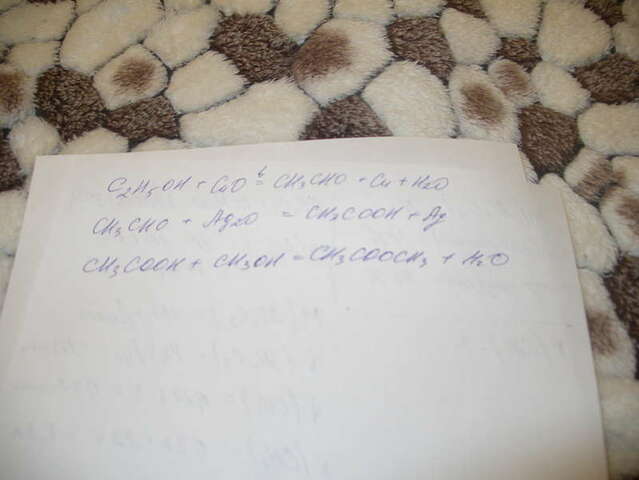 C2H5OH + CuO =t CH3CHO + Cu + H2O
CH3CHO + Ag2O = CH3COOH + Ag
CH3COOH + CH3OH = CH3COOCH3 + H2O